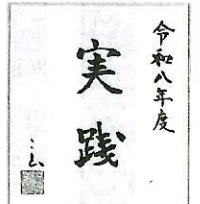 令和八年度
実践